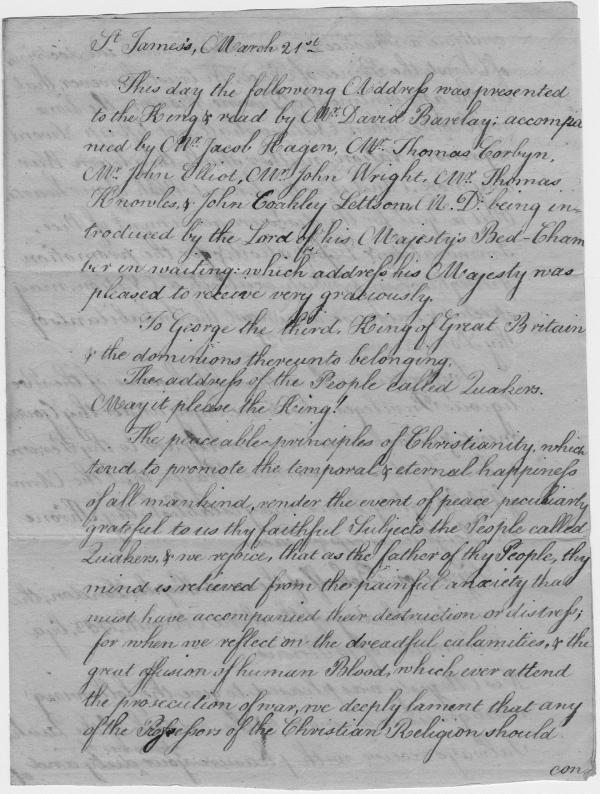 St. James's, March 21st
This day the following Address was presented
to the King & read by Mr. David Barclay; accompa
nied by Mr. Jacob Hagen, Mr. Thomas Corbyn,
Mr. John Elliot, Mr. John Wright, Mr. Thomas
Knowles, & John Coakley Lettsom, M. D. being in-
troduced by the Lord of his Majesty's Bed-Cham
ber in waiting: which address his Majesty was
pleased to receive very graciously.
To George the third, King of Great Britain
& the dominions thereunto belonging.
The address of the People called Quakers.
May it please the King!
The peaceable principles of Christianity, which
tend to promote the temporal & eternal happiness
of all mankind, render the event of peace peculiarly
grateful to us thy faithful Subjects the People called
Quakers, & we rejoice, that as the father of thy People, thy
mind is relieved from the painful anxiety that
must have accompanied their destruction or distress;
for when we reflect on the dreadful calamities, & the
great effusion of human Blood, which ever attend
the prosecution of war, we deeply lament that any
of the Professors of the Christian Religion should
con